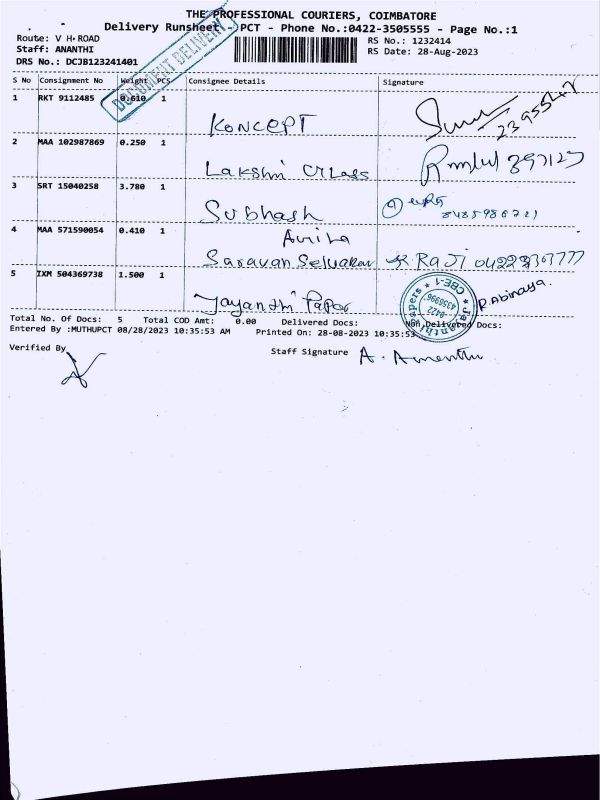 THE PROFESSIONAL COURIERS, COIMBATORE
Delivery Runsheet - PCT - Phone No.:0422-3505555 - Page No.:1
Route: V H ROAD
RS No.: 1232414
Staff: ANANTHI
RS Date: 28-Aug-2023
DRS No.: DCJB123241401
DOCUMENT DELIVERY
S No Consignment No Weight PCS Consignee Details Signature
1 RKT 9112485 0.610 1
KONCEPT
2395547
2 MAA 102987869 0.250 1
Lakshmi Glass
3 SRT 15040258 3.780 1
Subhash
4 MAA 571590054 0.410 1
Saravan Selvakar K. RAJI
5 IXM 504369738 1.500 1
Jayanthi Paper R. Abinaya.
Jayanthi Papers CBE-1 0422
Total No. Of Docs: 5 Total COD Amt: 0.00 Delivered Docs: Non Delivered Docs:
Entered By :MUTHUPCT 08/28/2023 10:35:53 AM Printed On: 28-08-2023 10:35:53
Verified By
Staff Signature A. Ananthi